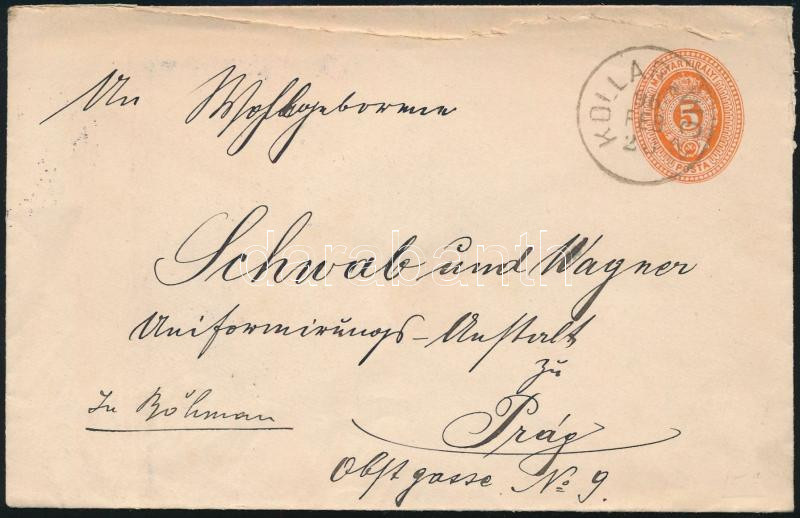 An Wohlgeborene
KOLLA
MAGYAR KIRÁLYI
5
POSTA
Schwab und Wagner
darabanth
Uniformirungs-Anstalt
zu
In Böhman
Prág
Obstgasse No. 9.